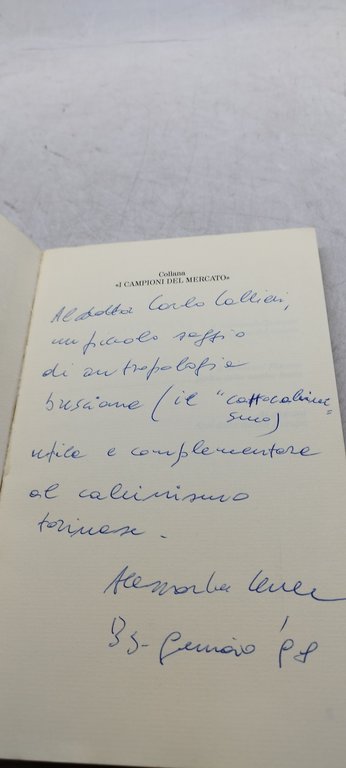 Collana
«I CAMPIONI DEL MERCATO»
Al dottor Carlo Callieri,
un piccolo saggio
di antropologia
bresciana (il "cattocalvini-
smo)
utile e complementare
al calvinismo
torinese.
Bs- gennaio '98